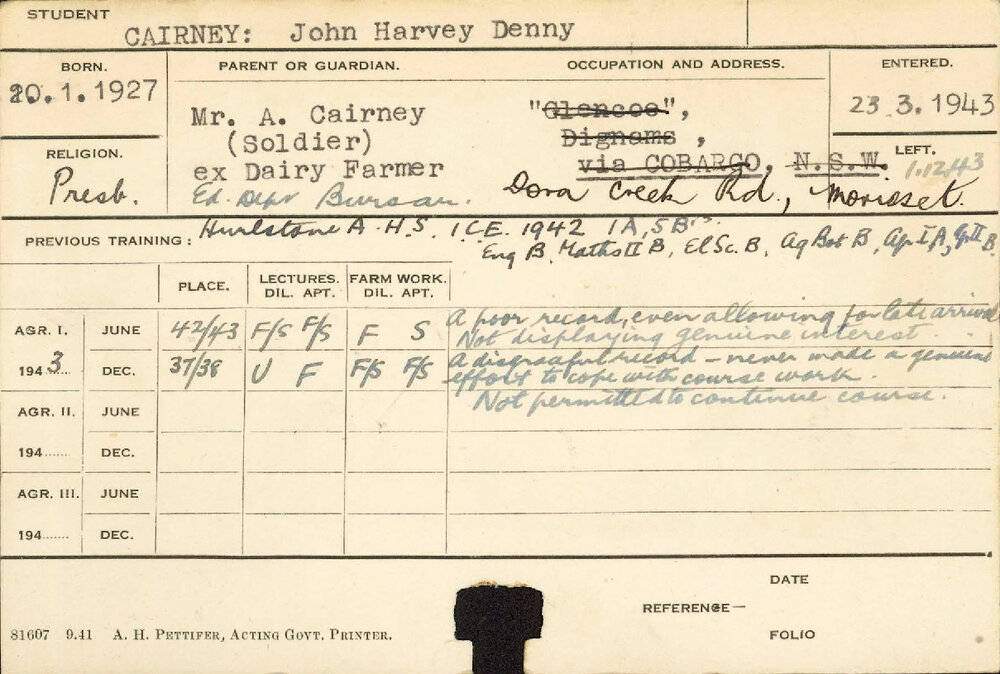 STUDENT
CAIRNEY: John Harvey Denny
BORN.
20.1.1927
PARENT OR GUARDIAN.
Mr. A. Cairney
(Soldier)
ex Dairy Farmer
Ed. Dept Bursar.
OCCUPATION AND ADDRESS.
"Glencoe",
Dignams ,
via COBARGO, N.S.W.
Dora Creek Rd., Morisset.
ENTERED.
23 3.1943
RELIGION.
Presb.
LEFT.
1.12.43
PREVIOUS TRAINING: Hurlstone A.H.S. I.C.E. 1942 1A, 5B's
Eng B, Maths II B, El Sc. B, Ag Bot B, Agr I A, Agr II B.
PLACE. LECTURES. DIL. APT. FARM WORK. DIL. APT.
AGR. I. JUNE 42/43 F/S F/S F S A poor record, even allowing for late arrival
Not displaying genuine interest.
1943 DEC. 37/38 U F F/S F/S A disgraceful record – never made a genuine
effort to cope with course work.
Not permitted to continue course.
AGR. II. JUNE
194....... DEC.
AGR. III. JUNE
194....... DEC.
DATE
REFERENCE—
FOLIO
81607 9.41 A. H. PETTIFER, ACTING GOVT. PRINTER.